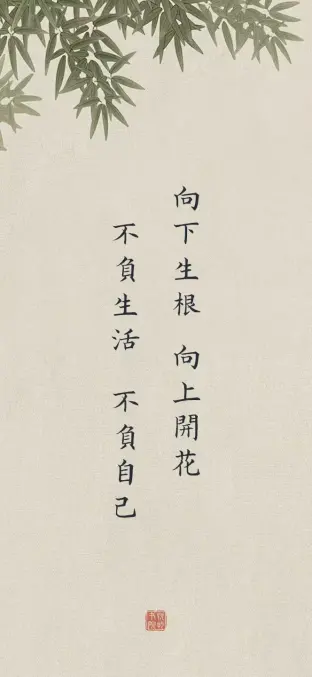 向下生根 向上開花
不負生活 不負自己